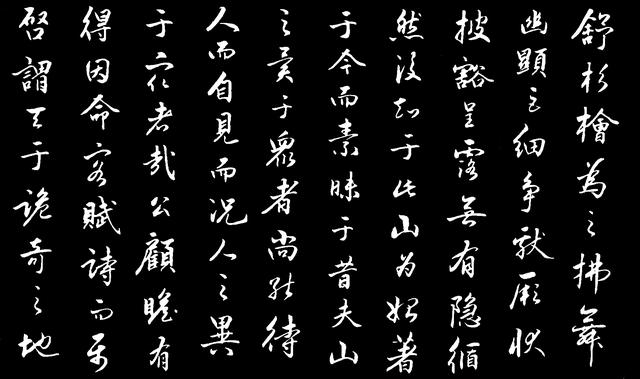 舒杉檜為之拂舞
幽顯巨細爭獻厥狀
披豁呈露無有隱循
然後知于此山為始著
于今而素昧于昔夫山
之異于眾者尚能待
人而自見而況人之異
于眾者哉公顧瞻有
得因命客賦詩而屬
啓謂天于詭奇之地